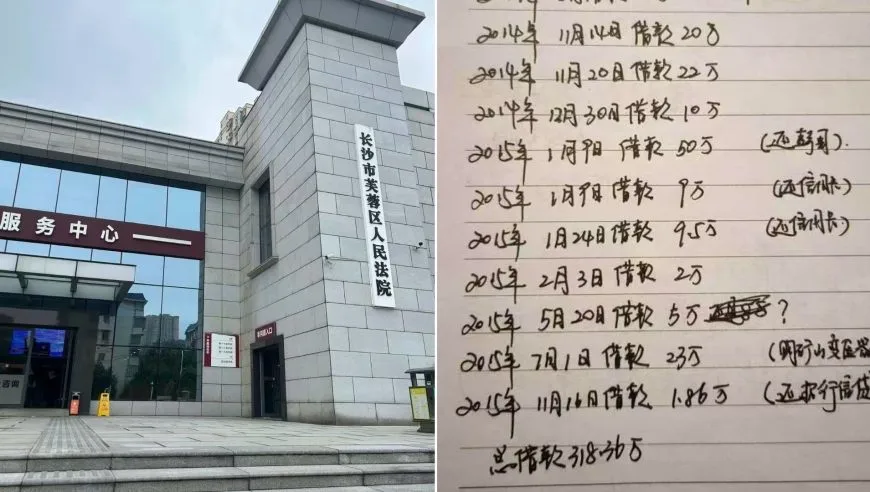 服务中心
长沙市芙蓉区人民法院
咨询
2014年 11月14日 借款 20万
2014年 11月20日 借款 22万
2014年 12月30日 借款 10万
2015年 1月9日 借款 50万
2015年 1月9日 借款 9万 (还信用卡)
2015年 1月24日 借款 9.5万 (还信用卡)
2015年 2月3日 借款 2万
2015年 5月20日 借款 5万 ?
2015年 7月1日 借款 23万
2015年 11月16日 借款 1.86万
总借款 318.36万